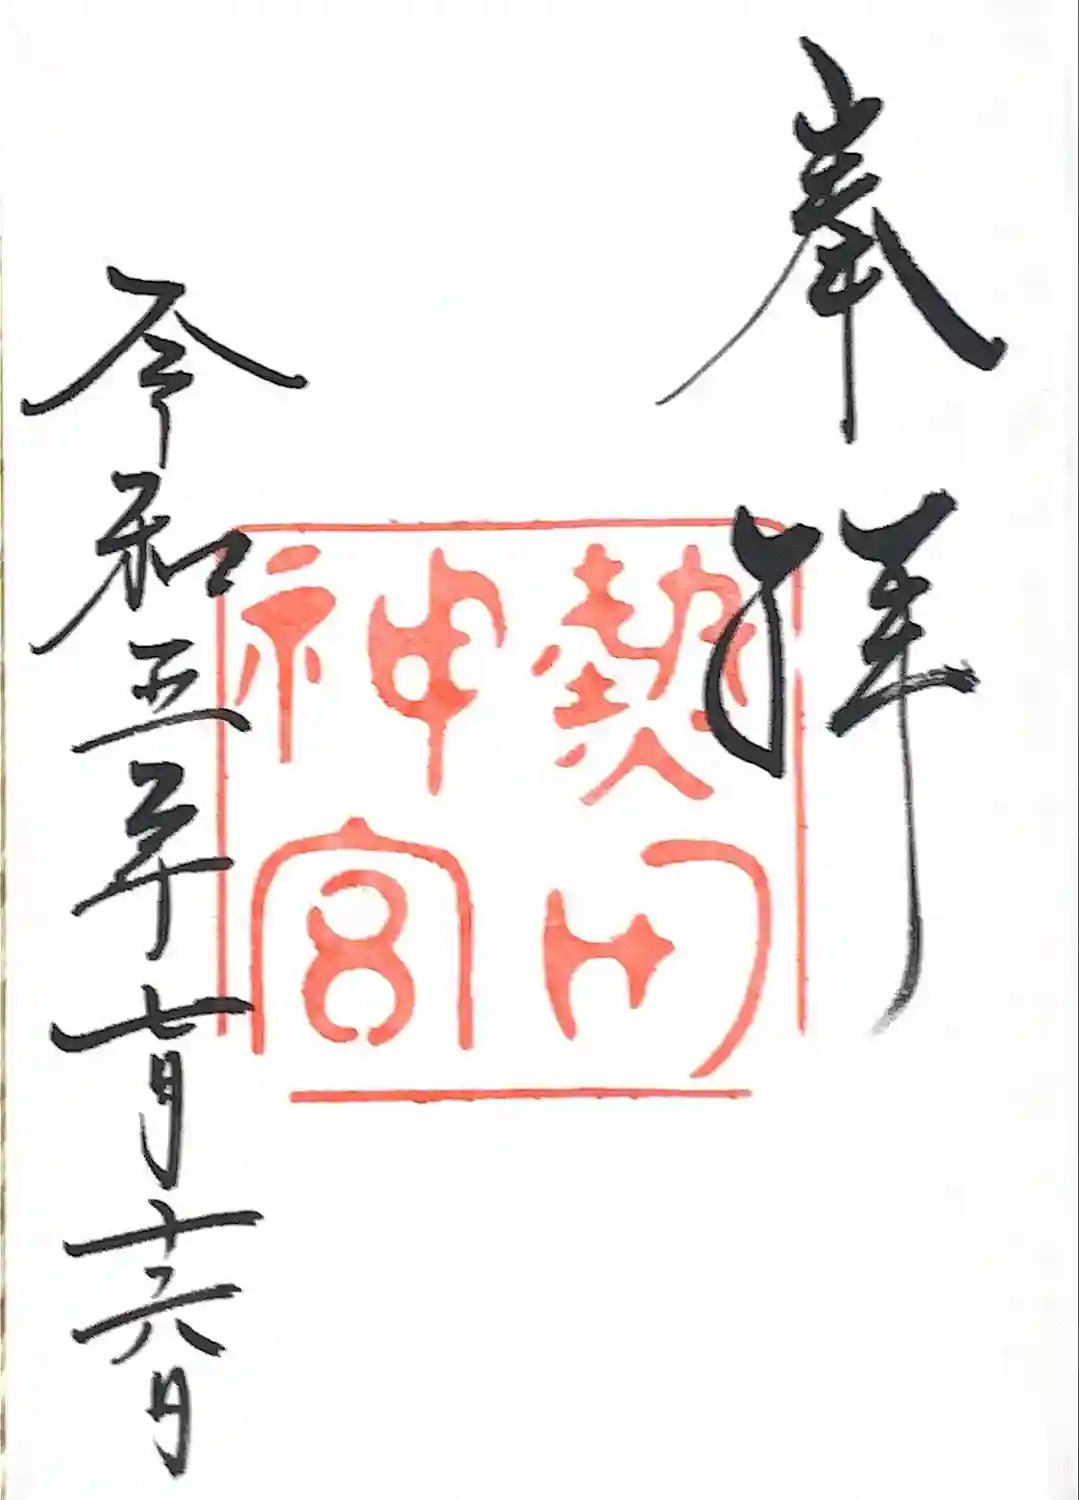 奉拝
熱田
神宮
令和五年七月十六日